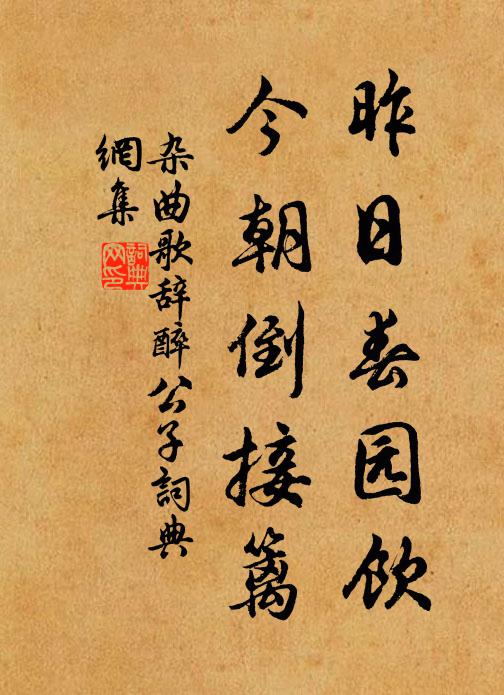 昨日春园饮
今朝倒接篱
杂曲歌辞醉公子詞典
網集
詞典
网印